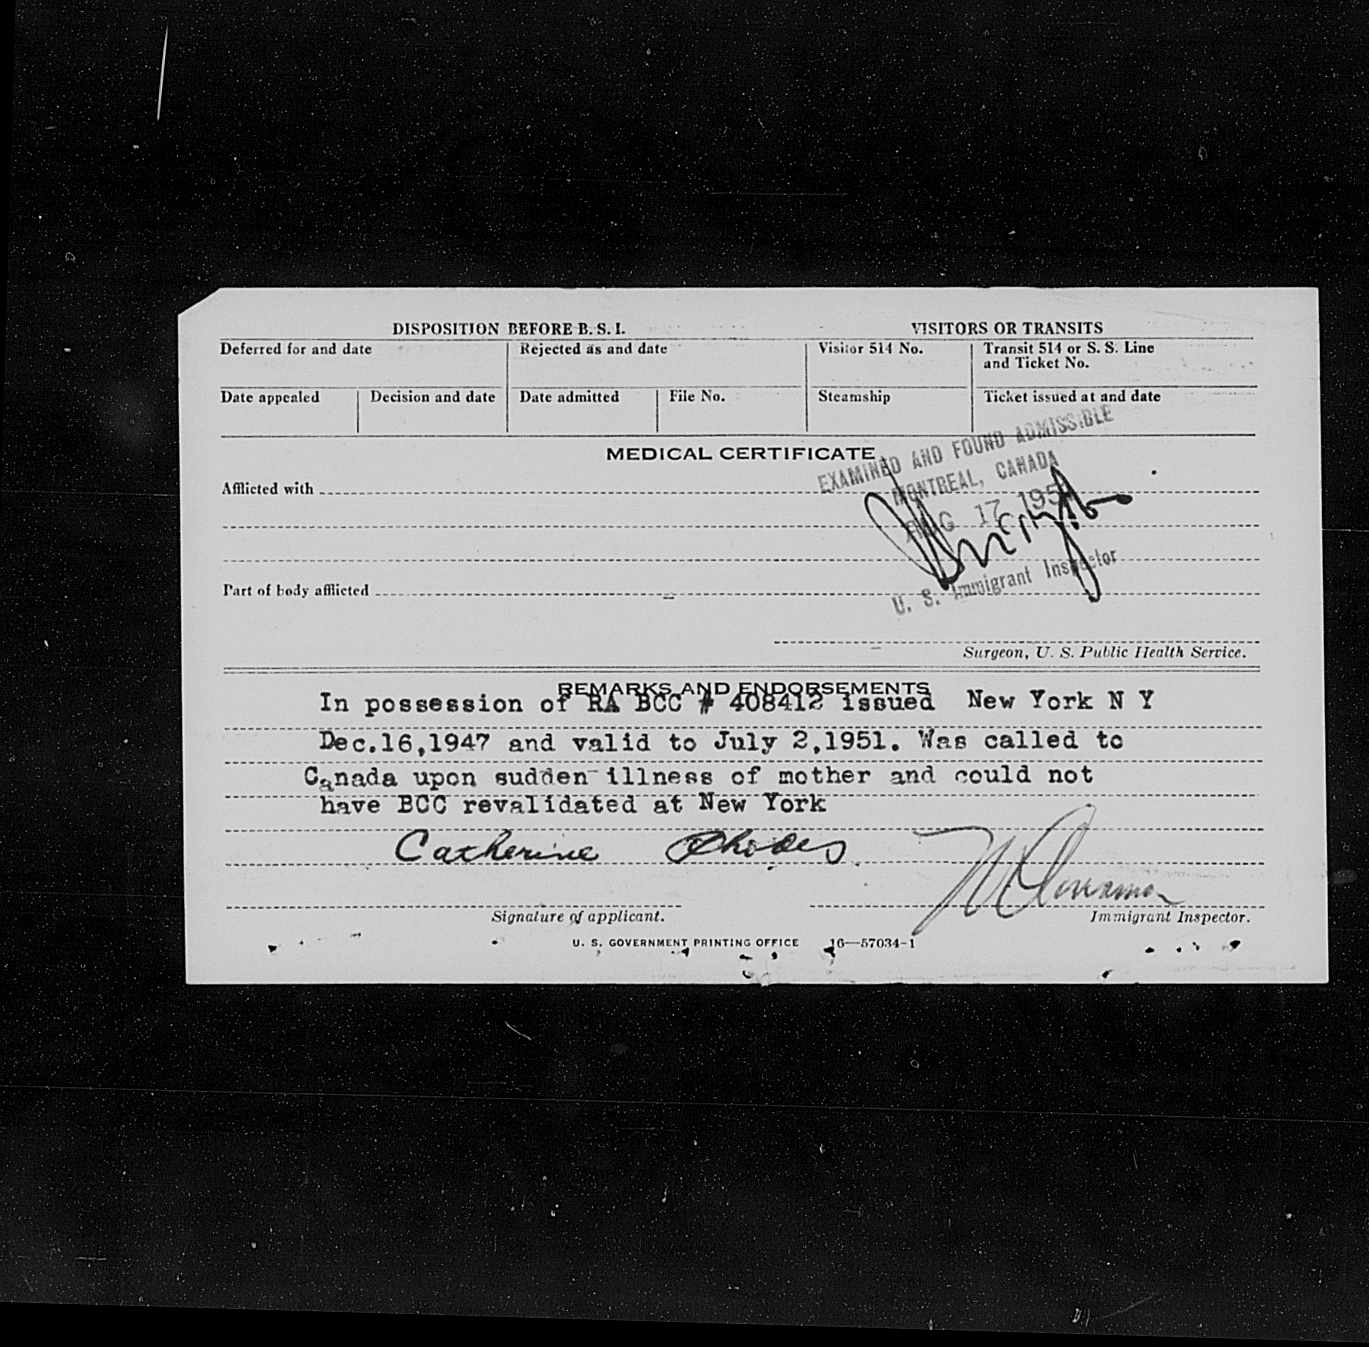 DISPOSITION BEFORE B. S. I.
VISITORS OR TRANSITS
Deferred for and date
Rejected as and date
Visitor 514 No.
Transit 514 or S. S. Line
and Ticket No.
Date appealed
Decision and date
Date admitted
File No.
Steamship
Ticket issued at and date
MEDICAL CERTIFICATE
EXAMINED AND FOUND ADMISSIBLE
MONTREAL, CANADA
AUG 17 195
U. S. Immigrant Inspector
Afflicted with
Part of body afflicted
Surgeon, U. S. Public Health Service.
REMARKS AND ENDORSEMENTS
In possession of RA BCC # 408412 issued New York N Y
Dec.16,1947 and valid to July 2,1951. Was called to
Canada upon sudden illness of mother and could not
have BCC revalidated at New York
Catherine Rhodes
Signature of applicant.
Immigrant Inspector.
U. S. GOVERNMENT PRINTING OFFICE 16—57034-1